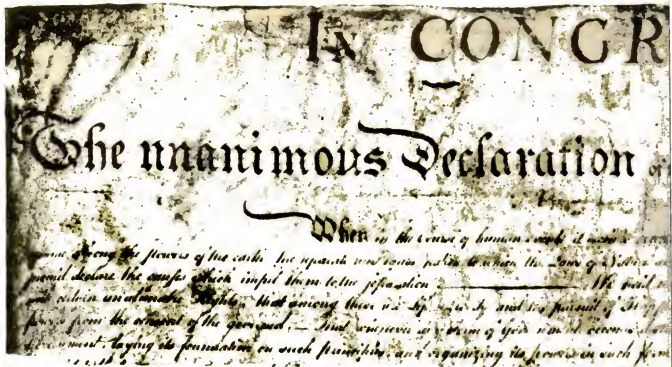 IN CONGR
The unanimous Declaration
When in the course of human events it
among the powers of the earth, the separate and equal station to which the Laws of Nature
should declare the causes which impel them to the separation. We hold
with certain unalienable Rights, that among these are Life, Liberty and the pursuit of
powers from the consent of the governed, That whenever any Form of Government becomes
Government, laying its foundation on such principles, and organizing its powers in such form